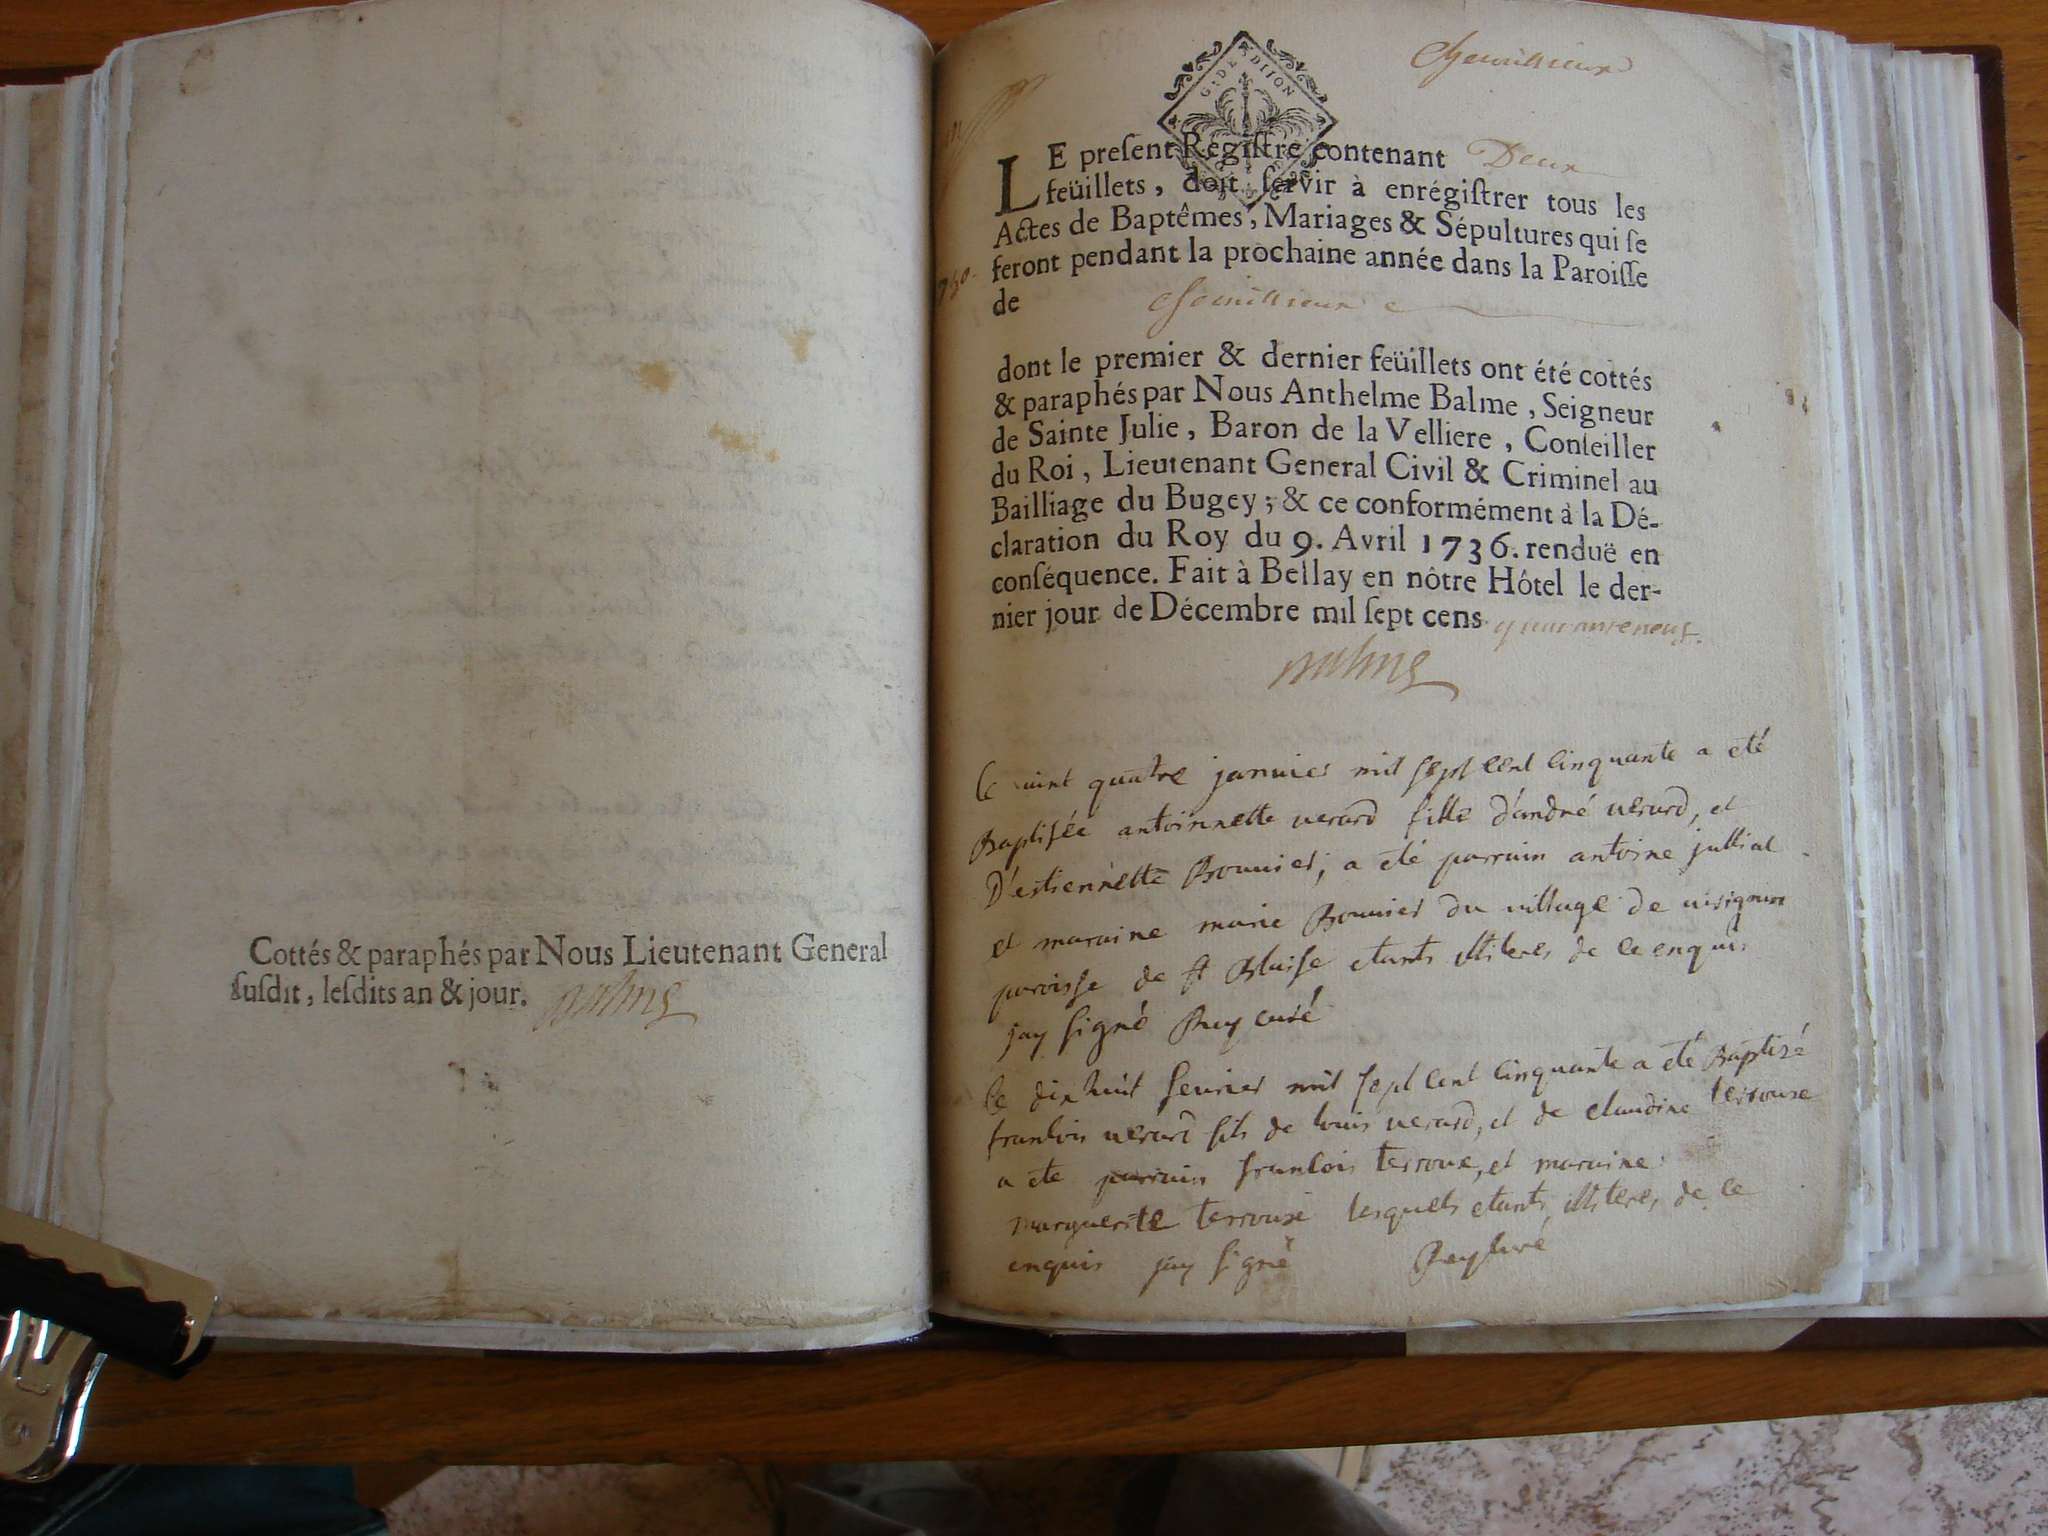 Cottés & paraphés par Nous Lieutenant General
susdit, lesdits an & jour. Balme
G. DE DIJON
Chemillieux
LE present Régistre contenant Deux
feüillets, doit servir à enrégistrer tous les
Actes de Baptêmes, Mariages & Sépultures qui se
feront pendant la prochaine année dans la Paroisse
de Chemillieux
dont le premier & dernier feüillets ont été cottés
& paraphés par Nous Anthelme Balme, Seigneur
de Sainte Julie, Baron de la Velliere, Conseiller
du Roi, Lieutenant General Civil & Criminel au
Bailliage du Bugey; & ce conformément à la Dé-
claration du Roy du 9. Avril 1736. renduë en
conséquence. Fait à Bellay en nôtre Hôtel le der-
nier jour de Décembre mil sept cens quarante neuf.
Balme
le vint quatre janvier mil sept cent cinquante a eté
Baptisée antoinnette verard fille d'andré verard, et
D'estiennette Bonnier, a eté parrain antoine
et maraine marie Bonnier du village de
paroisse de st Blaise etants illiteres de ce enquis
jay signé Rey curé
le dix huit fevrier mil sept cent cinquante a eté Baptizé
francois verard fils de louis verard, et de claudine terrouse
a ete parrain francois terroux, et maraine
marguerite terrouse lesquels etants illiteres, de ce
enquis jay signé Rey curé